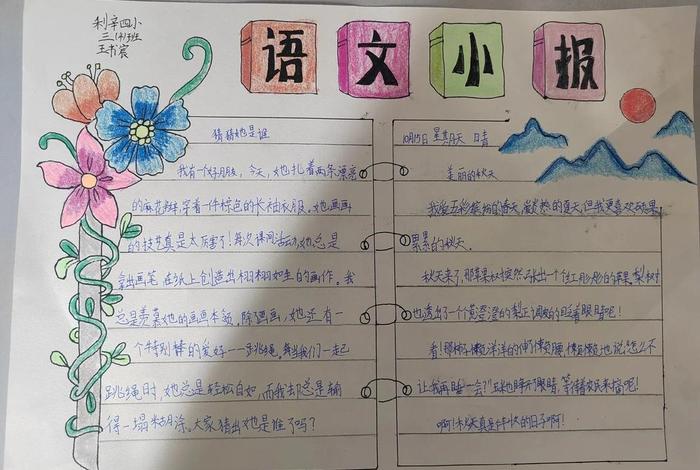 利辛四小
三(4)班
王书宾
语文小报
猜猜她是谁
我有一个好朋友，今天，她扎着两条漂亮
的麻花辫，穿着一件棕色的长袖衣服。她画画
的技艺真是太厉害了！每次课间活动，她总是
拿出画笔，在纸上创造出栩栩如生的画作。我
总是羡慕她的画画本领，除了画画，她还有一
个特别棒的爱好——跳绳。每当我们一起
跳绳时，她总是轻松自如，而我却总是输
得一塌糊涂。大家猜出她是谁了吗？
10月15日 星期天 日青
美丽的秋天
我爱五彩缤纷的春天，爱炎热的夏天，但我更喜欢硕果
累累的秋天。
秋天来了，那苹果树突然张出一个红彤彤的苹果。梨树
也透出了一个黄澄澄的梨正调皮的日着眼睛呢！
看！那柿子懒洋洋的伸懒腰，懒懒地说，怎么不
让我再睡一会？玉米也睁开眼睛，等待农民来摘呢！
啊！秋天真是件快的日子啊！